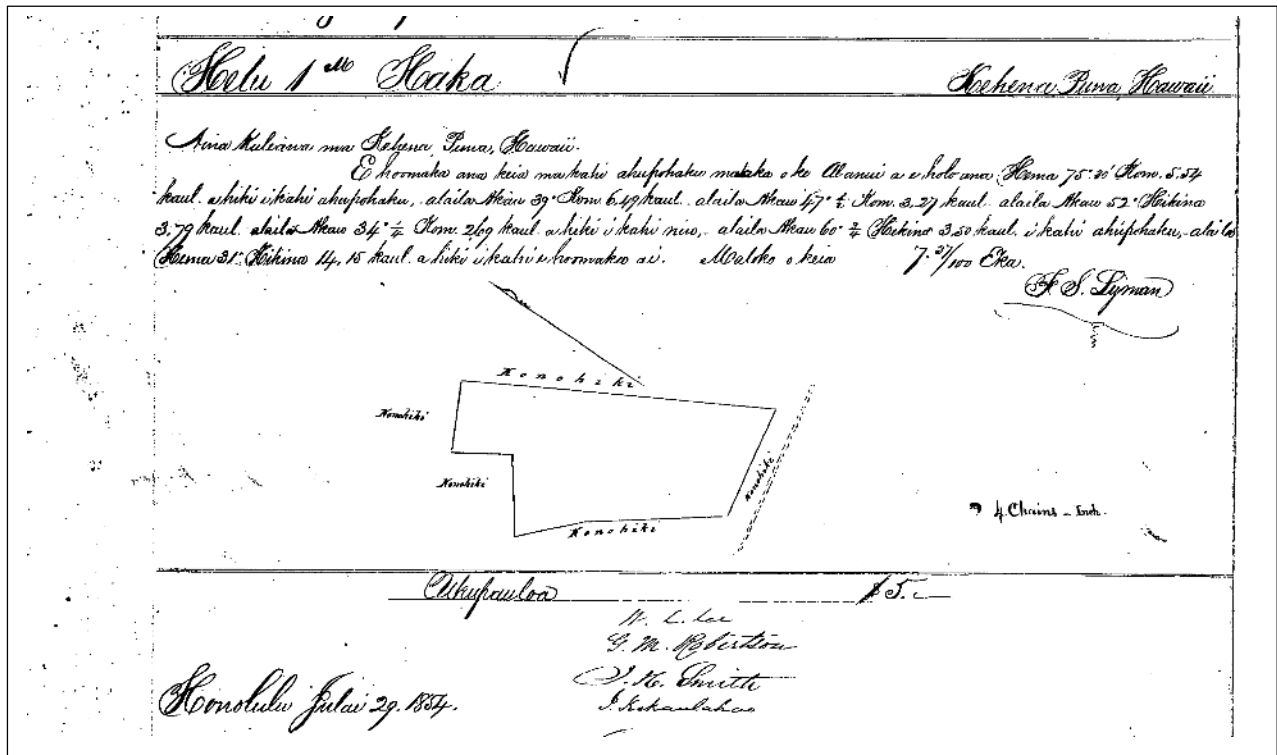 Helu 1 M Haka Kehena Puna, Hawaii
Aina Kuleana ma Kehena, Puna, Hawaii.
E hoomaka ana keia ma kahi ahupohaku mauka o ke Alanui a e holo ana Hema 75° 20' Kom. 5.54
kaul. a hiki i kahi ahupohaku, alaila Akau 39° Kom 6,49 kaul. alaila Akau 47° ½ Kom. 3,27 kaul. alaila Akau 52° Hikina
3,79 kaul. alaila Akau 34° ¼ Kom. 2,09 kaul. a hiki i kahi niu, alaila Akau 60° ¾ Hikina 3,50 kaul. i kahi ahupohaku, alaila
Hema 31° Hikina 14,15 kaul. a hiki i kahi i hoomaka ai. Maloko o keia 7. 37/100 Eka.
F. S. Lyman
Konohiki
Konohiki
Konohiki
Konohiki
Konohiki
4 Chains - Inch.
Ukupauloa $5.
W. L. Lee
G. M. Robertson
J. H. Smith
J. Kekaulahao
Honolulu Julai 29. 1854.